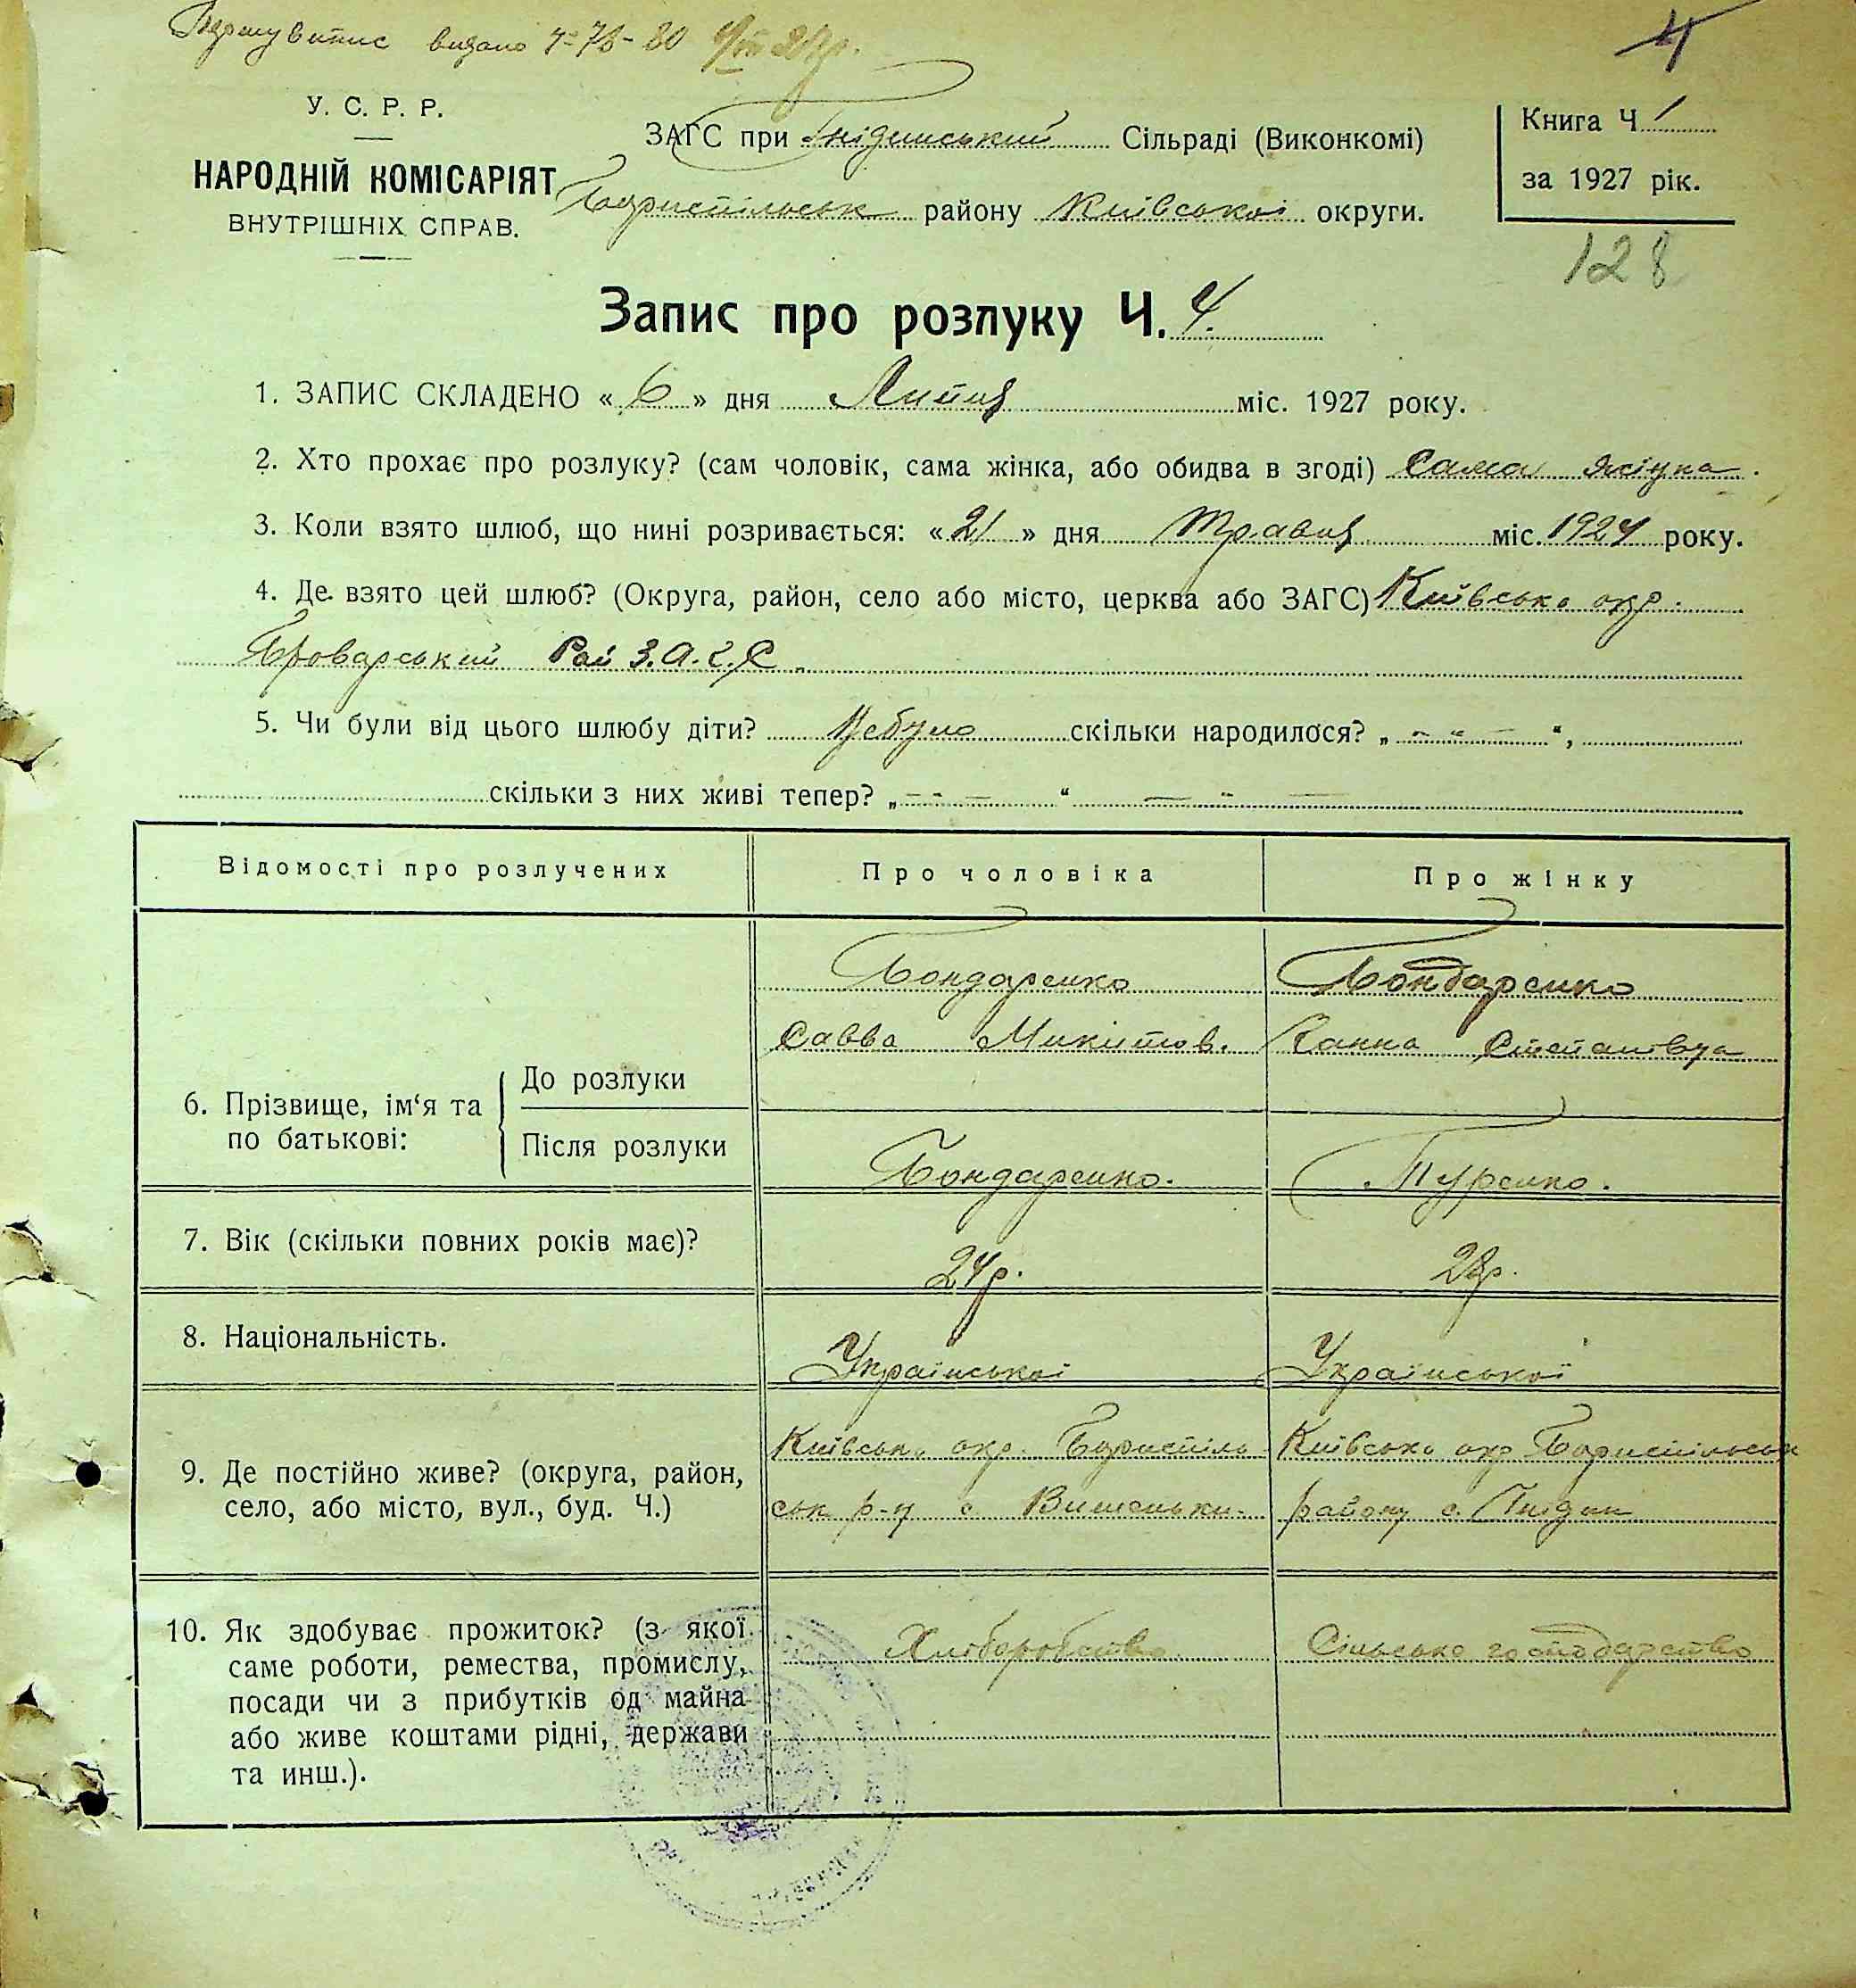 Першу витис видано Ч-78-80
4
У. С. Р. Р.
НАРОДНІЙ КОМІСАРІЯТ
ВНУТРІШНІХ СПРАВ.
ЗАГС при Гнідинський Сільраді (Виконкомі)
Бориспільськ району Київської округи.
Книга Ч 1
за 1927 рік.
128
Запис про розлуку Ч. 4.
1. ЗАПИС СКЛАДЕНО « 6 » дня Липня міс. 1927 року.
2. Хто прохає про розлуку? (сам чоловік, сама жінка, або обидва в згоді) Сама жінка.
3. Коли взято шлюб, що нині розривається: «21» дня Травня міс. 1924 року.
4. Де взято цей шлюб? (Округа, район, село або місто, церква або ЗАГС) Київсько окр.
Броварський Рай З.А.Г.С.
5. Чи були від цього шлюбу діти? Небуло скільки народилося? „ - " — ",
скільки з них живі тепер? „ - - — " — " —
Відомості про розлучених
Про чоловіка
Про жінку
6. Прізвище, ім'я та по батькові:
До розлуки
Після розлуки
Бондаренко
Савва Микитов.
Бондаренко
Ганна Степанівна
Бондаренко.
Туренко.
7. Вік (скільки повних років має)?
24р.
28р.
8. Національність.
Української
Української
9. Де постійно живе? (округа, район,
село, або місто, вул., буд. Ч.)
Київсько окр. Бориспіль-
ськ р-н с. Вишеньки.
Київсько окр Бориспільськ
району с. Гнідин
10. Як здобуває прожиток? (з якої
саме роботи, ремества, промислу,
посади чи з прибутків од майна
або живе коштами рідні, держави
та инш.).
Хліборобство.
Сільсько господарство